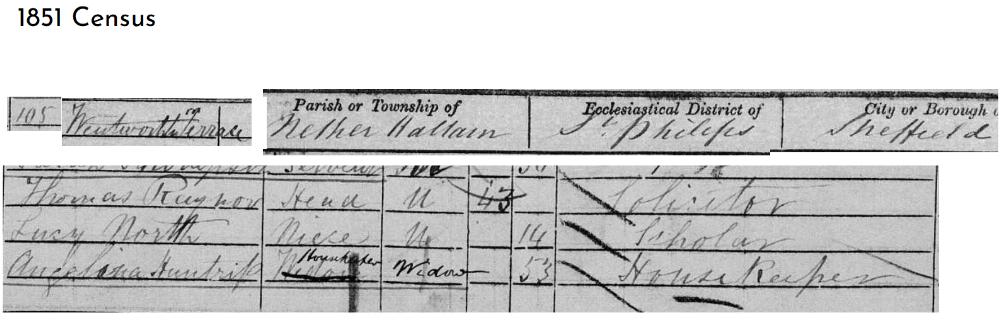 1851 Census
105 Wentworth Terrace
Parish or Township of Ecclesiastical District of City or Borough
Nether Hallam St Philips Sheffield
Thomas Raynor Head U 43 Solicitor
Lucy North Niece U 14 Scholar
Angelina Huntrip Housekeeper Widow 53 House Keeper